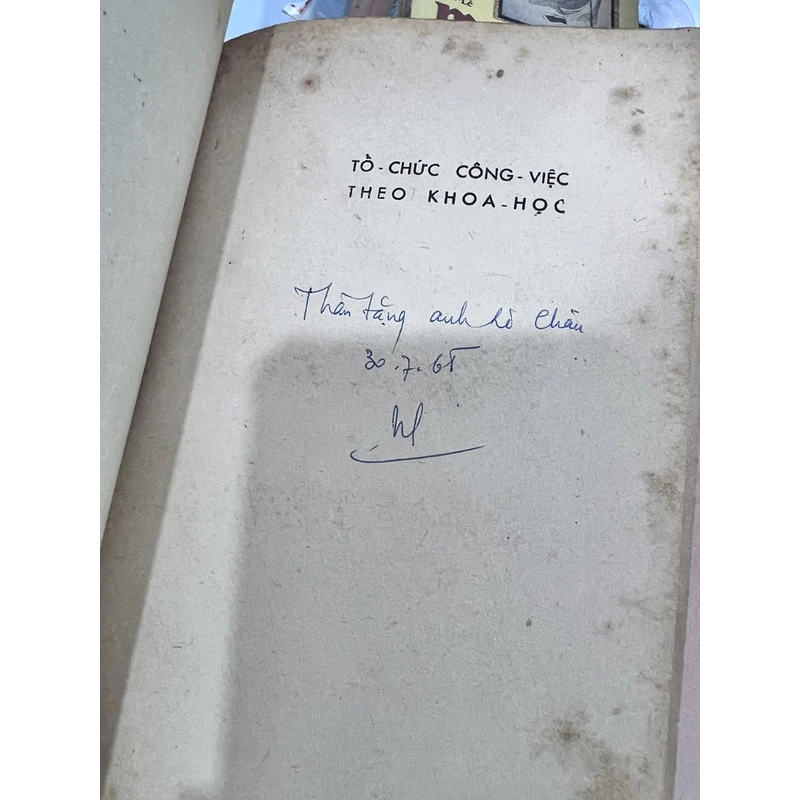 TỔ-CHỨC CÔNG-VIỆC
THEO KHOA-HỌC
Thân tặng anh Hồ Châu
30.7.65